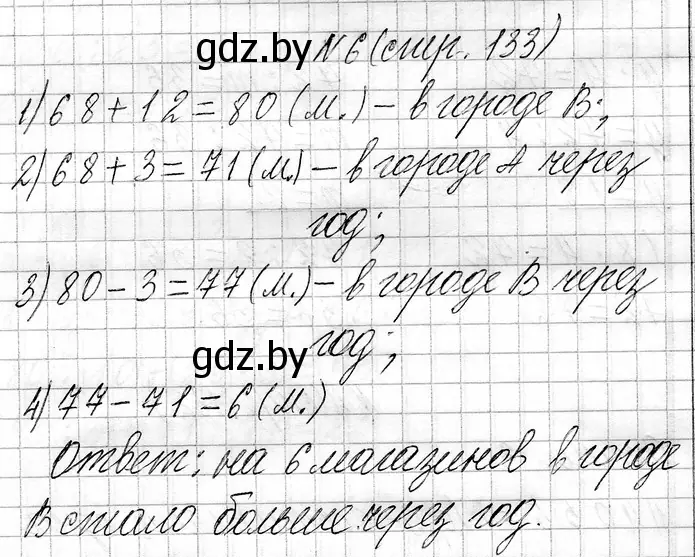 gdz.by
№6 (стр. 133)
1) 68 + 12 = 80 (м.) – в городе В;
2) 68 + 3 = 71 (м.) – в городе А через
год;
3) 80 – 3 = 77 (м.) – в городе В через
год;
gdz.by
4) 77 – 71 = 6 (м.)
Ответ: на 6 магазинов в городе
В стало больше через год.